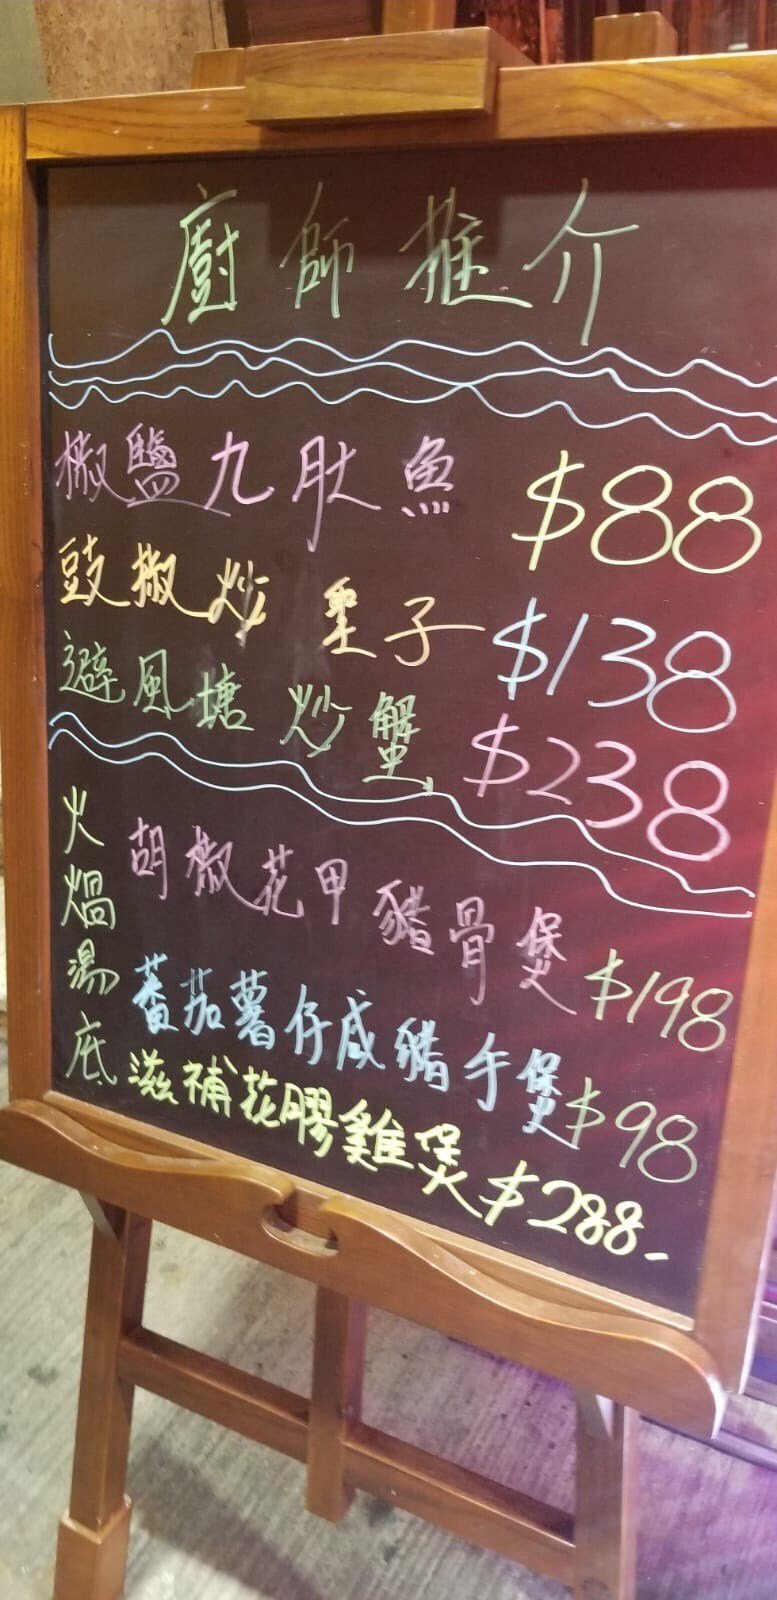 廚師推介
椒鹽九肚魚 $88
豉椒炒聖子 $138
避風塘炒蟹 $238
火煱湯底
胡椒花甲豬骨煲 $198
蕃茄薯仔咸豬手煲 $98
滋補花膠雞煲 $288-